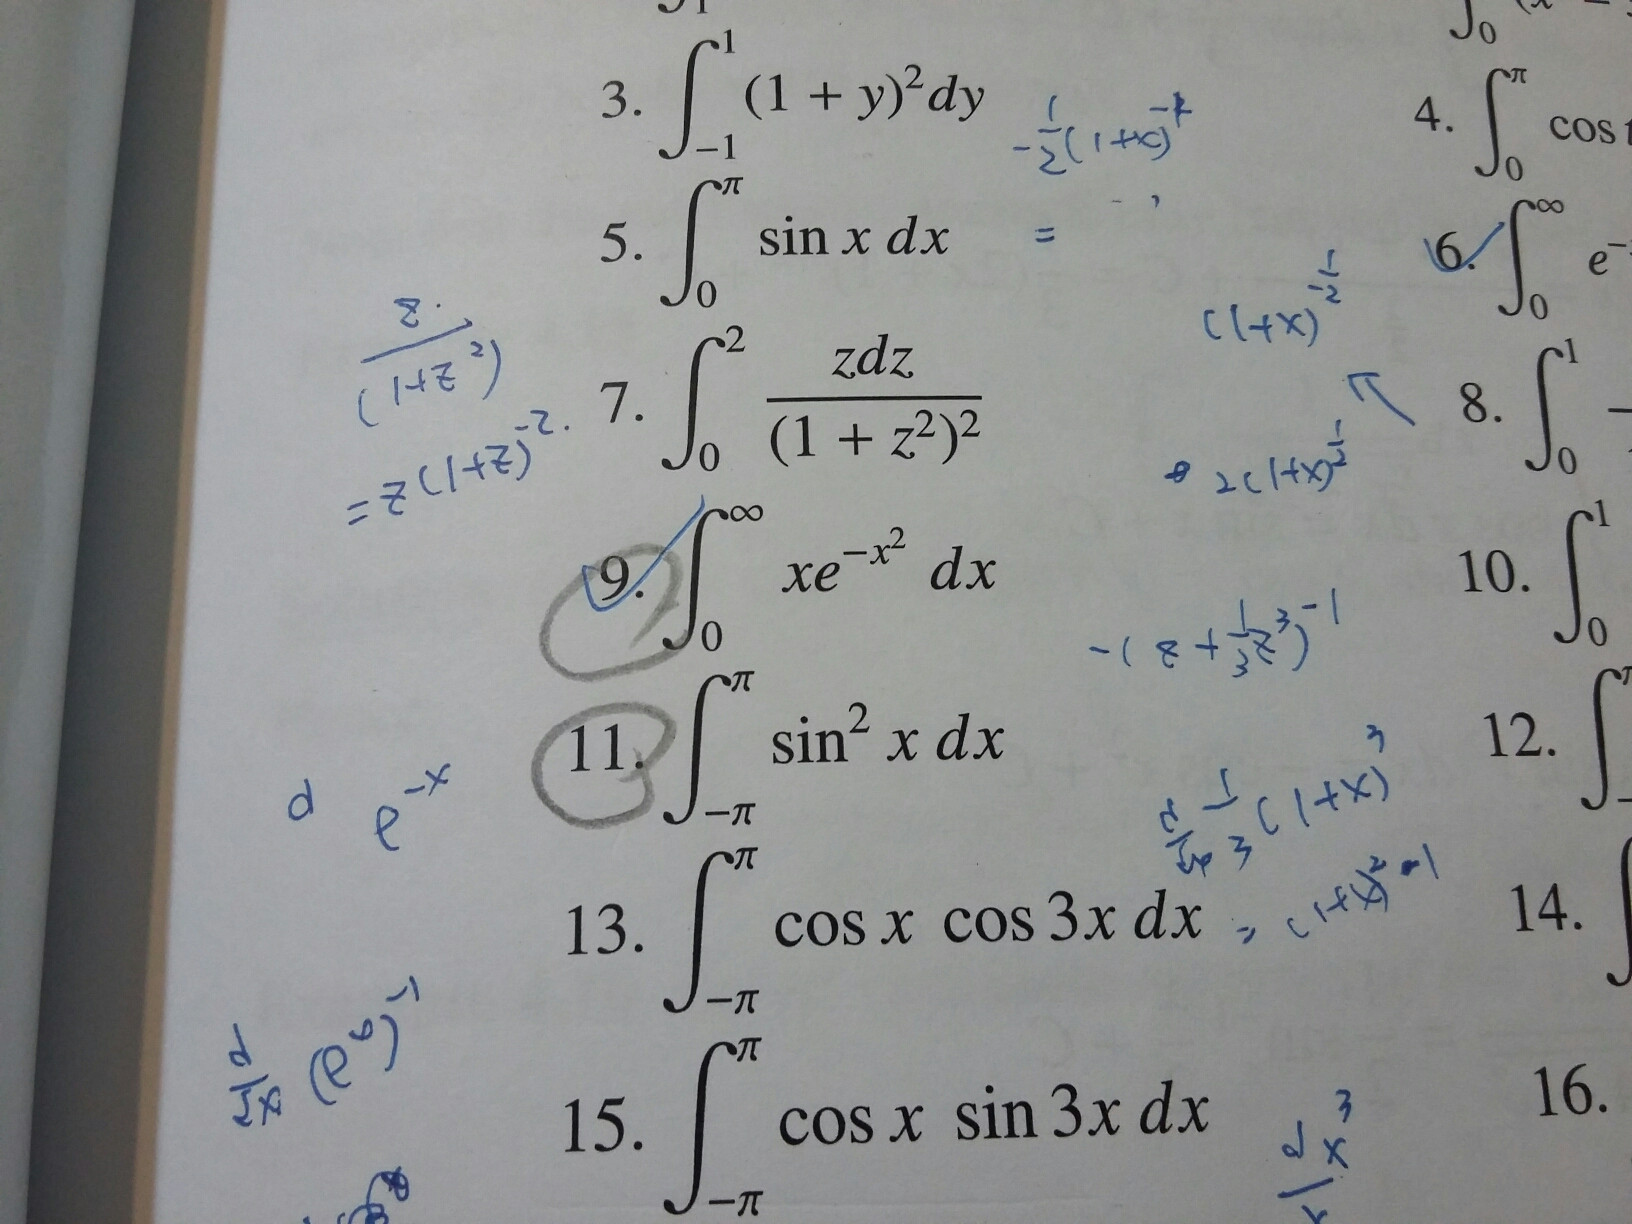 3. ∫_{-1}^{1} (1 + y)² dy
-1/2 (1+x)
4. ∫_{0}^{π} cos
5. ∫_{0}^{π} sin x dx
=
6. ∫_{0}^{∞} e⁻
z / (1+z²)
(1+x)^{-1/2}
7. ∫_{0}^{2} zdz / (1 + z²)²
8. ∫_{0}^{1}
= z(1+z)^{-2}.
2(1+x)^{1/2}
9. ∫_{0}^{∞} xe^{-x²} dx
10. ∫_{0}^{1}
-(z + 1/3 z³)^{-1}
11. ∫_{-π}^{π} sin² x dx
12. ∫
d e^{-x}
d/dx 1/3 (1+x)³
13. ∫_{-π}^{π} cos x cos 3x dx
= (1+x)² -1
14. ∫
d/dx (e
)^{-1}
15. ∫_{-π}^{π} cos x sin 3x dx
16.
d x³